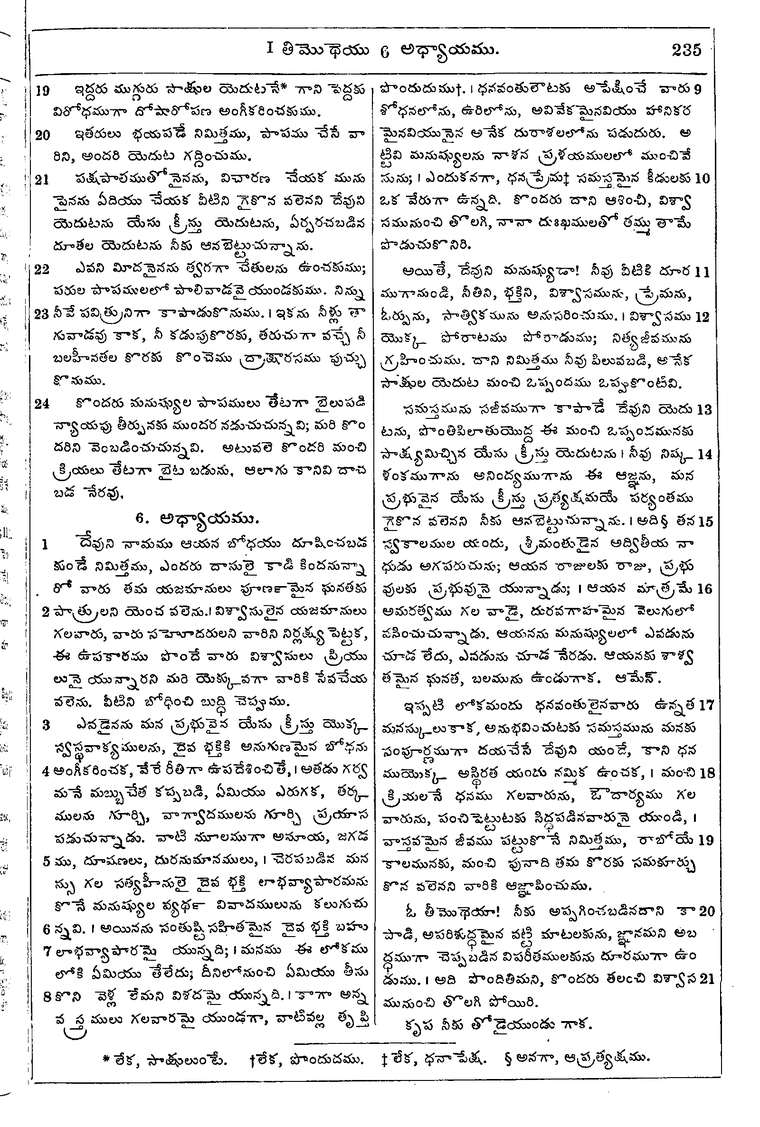 I తిమొథెయు 6 అధ్యాయము. 235
19 ఇద్దరు ముగ్గురు సాక్షుల యెదుటనే* గాని పెద్దకు
విరోధముగా దోషారోపణ అంగీకరించకుము.
20 ఇతరులు భయపడే నిమిత్తము, పాపము చేసే వా
రిని, అందరి యెదుట గద్దించుము.
21 పక్షపాతముతోనైనను, విచారణ చేయక మును
పైనను ఏదియు చేయక వీటిని గైకొన వలెనని దేవుని
యెదుటను యేసు క్రీస్తు యెదుటను, ఏర్పరచబడిన
దూతల యెదుటను నీకు ఆనబెట్టుచున్నాను.
22 ఎవని మీదనైనను త్వరగా చేతులను ఉంచకుము;
పరుల పాపములలో పాలివాడవై యుండకుము. నిన్ను
23 నీవే పవిత్రునిగా కాపాడుకొనుము. । ఇకను నీళ్లు తా
గువాడవు కాక, నీ కడుపుకొరకు, తరుచుగా వచ్చే నీ
బలహీనతల కొరకు కొంచెము ద్రాక్షారసము పుచ్చు
కొనుము.
24 కొందరు మనుష్యుల పాపములు తేటగా బైలుపడి
న్యాయపు తీర్పునకు ముందర నడుచుచున్నవి; మరి కొం
దరిని వెంబడించుచున్నవి. అటువలె కొందరి మంచి
క్రియలు తేటగా బైట బడును, ఆలాగు కానివి దాచ
బడ నేరవు.
6. అధ్యాయము.
1 దేవుని నామము ఆయన బోధయు దూషించబడ
కుండే నిమిత్తము, ఎందరు దాసులై కాడి కిందనున్నా
రో వారు తమ యజమానులు పూర్ణమైన ఘనతకు
2 పాత్రులని యెంచ వలెను. । విశ్వాసులైన యజమానులు
గలవారు, వారు సహోదరులని వారిని నిర్లక్ష్యపెట్టక,
ఈ ఉపకారము పొందే వారు విశ్వాసులు ప్రియు
లునై యున్నారని మరి యెక్కువగా వారికి సేవచేయ
వలెను. వీటిని బోధించి బుద్ధి చెప్పుము.
3 ఎవడైనను మన ప్రభువైన యేసు క్రీస్తు యొక్క
స్వస్థవాక్యములను, దైవ భక్తికి అనుగుణమైన బోధను
4 అంగీకరించక, వేరే రీతిగా ఉపదేశించితే, । అతడు గర్వ
మనే మబ్బుచేత కప్పబడి, ఏమియు ఎరుగక, తర్క
ములను గూర్చి, వాగ్వాదములను గూర్చి ప్రయాస
పడుచున్నాడు. వాటి మూలముగా అసూయ, జగడ
5 ము, దూషణలు, దురనుమానములు, । చెరపబడిన మన
స్సు గల సత్యహీనులై దైవ భక్తి లాభవ్యాపారమను
కొనే మనుష్యుల వ్యర్థ వివాదములును కలుగుచు
6 న్నవి. । అయినను సంతుష్టిసహితమైన దైవ భక్తి బహు
7 లాభవ్యాపారమై యున్నది; । మనము ఈ లోకము
లోకి ఏమియు తేలేదు; దీనిలోనుంచి ఏమియు తీసు
8 కొని వెళ్ల లేమని విశదమై యున్నది. । కాగా అన్న
వస్త్రములు గలవారమై యుండగా, వాటివల్ల తృప్తి
పొందుదుము†. । ధనవంతులౌటకు అపేక్షించే వారు 9
శోధనలోను, ఉరిలోను, అవివేకమైనవియు హానికర
మైనవియునైన అనేక దురాశలలోను పడుదురు. అ
ట్టివి మనుష్యులను నాశన ప్రళయములలో ముంచివే
సును; । ఎందుకనగా, ధనప్రేమ‡ సమస్తమైన కీడులకు 10
ఒక వేరుగా ఉన్నది. కొందరు దాని ఆశించి, విశ్వా
సమునుంచి తొలగి, నానా దుఃఖములతో తమ్ము తామే
పొడుచుకొనిరి.
అయితే, దేవుని మనుష్యుడా! నీవు వీటికి దూర 11
ముగానుండి, నీతిని, భక్తిని, విశ్వాసమును, ప్రేమను,
ఓర్పును, సాత్వికమును అనుసరించుము. । విశ్వాసము 12
యొక్క పోరాటము పోరాడుము; నిత్యజీవమును
గ్రహించుము. దాని నిమిత్తము నీవు పిలువబడి, అనేక
సాక్షుల యెదుట మంచి ఒప్పందము ఒప్పుకొంటివి.
సమస్తమును సజీవముగా కాపాడే దేవుని యెదు 13
టను, పొంతిపిలాతుయొద్ద ఈ మంచి ఒప్పందమునకు
సాక్ష్యమిచ్చిన యేసు క్రీస్తు యెదుటను । నీవు నిష్క 14
ళంకముగాను అనింద్యముగాను ఈ ఆజ్ఞను, మన
ప్రభువైన యేసు క్రీస్తు ప్రత్యక్షమయే పర్యంతము
గైకొన వలెనని నీకు ఆనబెట్టుచున్నాను. । అది§ తన 15
స్వకాలముల యందు, శ్రీమంతుడైన అద్వితీయ నా
థుడు అగపరుచును; ఆయన రాజులకు రాజు, ప్రభు
వులకు ప్రభువునై యున్నాడు; । ఆయన మాత్రమే 16
అమరత్వము గల వాడై, దురవగాహమైన వెలుగులో
వసించుచున్నాడు. ఆయనను మనుష్యులలో ఎవడును
చూడ లేదు, ఎవడును చూడ నేరడు. ఆయనకు శాశ్వ
తమైన ఘనత, బలమును ఉండుగాక. ఆమేన్.
ఇప్పటి లోకమందు ధనవంతులైనవారు ఉన్నత 17
మనస్కులుకాక, అనుభవించుటకు సమస్తమును మనకు
సంపూర్ణముగా దయచేసే దేవుని యందే, కాని ధన
ముయొక్క అస్థిరత యందు నమ్మిక ఉంచక, । మంచి 18
క్రియలనే ధనము గలవారును, ఔదార్యము గల
వారును, పంచిపెట్టుటకు సిద్ధపడినవారునై యుండి, ।
వాస్తవమైన జీవము పట్టుకొనే నిమిత్తము, రాబోయే 19
కాలమునకు, మంచి పునాది తమ కొరకు సమకూర్చు
కొన వలెనని వారికి ఆజ్ఞాపించుము.
ఓ తీమొథెయా! నీకు అప్పగించబడినదాని కా 20
పాడి, అపరిశుద్ధమైన వట్టి మాటలకును, జ్ఞానమని అబ
ద్ధముగా చెప్పబడిన విపరీతములకును దూరముగా ఉం
డుము. । అది పొందితిమని, కొందరు తలంచి విశ్వాస 21
మునుంచి తొలగి పోయిరి.
కృప నీకు తోడైయుండు గాక.
* లేక, సాక్షులుంటే. †లేక, పొందుదము. ‡ లేక, ధనాపేక్ష. § అనగా, ఆప్రత్యక్షము.